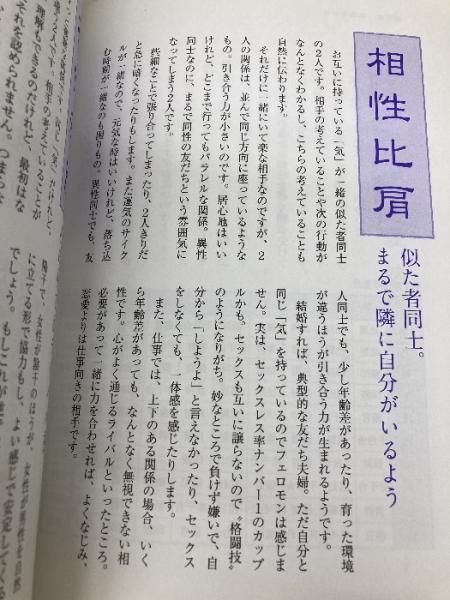 相性比肩
似た者同士。
まるで隣に自分がいるよう
お互いに持っている「気」が一緒の似た者同士
の2人です。相手の考えていることや次の行動が
なんとなくわかるし、こちらの考えていることも
自然に伝わります。
それだけに一緒にいて楽な相手なのですが、2
人の関係は、並んで同じ方向に座っているような
もの。引き合う力が小さいのです。居心地はいい
けれど、どこまで行ってもパラレルな関係。異性
同士なのに、まるで同性の友だちという雰囲気に
なってしまう2人です。
些細なことで張り合ってしまったり、2人きりだ
と急に暗くなったりもします。また運気のサイク
ルが一緒なので、元気な時はいいけれど、落ち込
む時期が一緒なのも困りもの。異性同士でも、友
人同士でも、少し年齢差があったり、育った環境
が違うほうが引き合う力が生まれるようです。
結婚すれば、典型的な友だち夫婦。ただ自分と
同じ「気」を持っているのでフェロモンは感じま
せん。実は、セックスレス率ナンバー1のカップ
ルかも。セックスも互いに譲らないので“格闘技”
のようになりがち。妙なところで負けず嫌いで、自
分から「しようよ」と言えなかったり、セックス
をしなくても、一体感を感じたりします。
また、仕事では、上下のある関係の場合、いく
ら年齢差があっても、なんとなく無視できない相
性です。心がよく通じるライバルといったところ。
必要があって一緒に力を合わせれば、よくなじみ、
恋愛よりは仕事向きの相手です。
理解もできるのだけれど、最初はな
それを認められません。つまらな
陽干で、女性が陰干のほうが、女性が男性を自然
に立てる形で協力もし、よい感じで安定してくる
でしょう。もしこれが